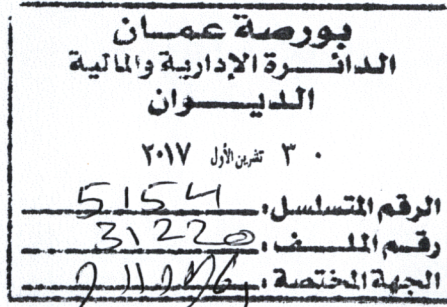 بورصة عمان
الدائرة الإدارية والمالية
الديوان
٣٠ تشرين الأول ٢٠١٧
الرقم المتسلسل: 5154
رقم الملف: 31220
الجهة المختصة: